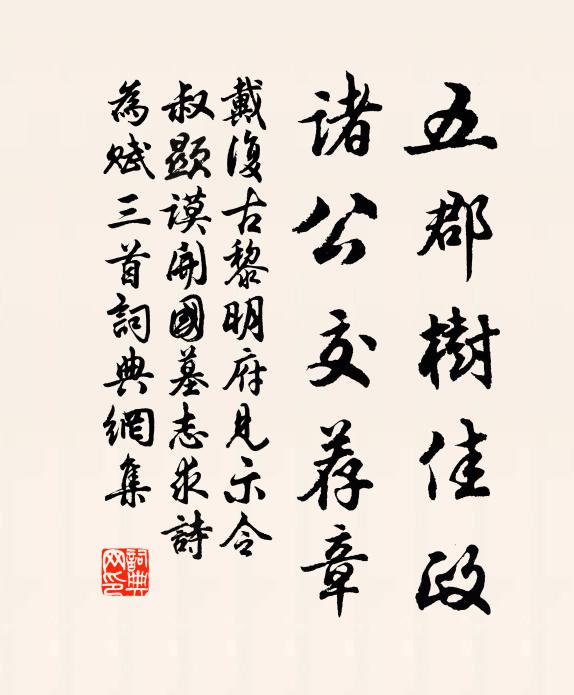 五郡樹佳政
諸公交荐章
戴復古黎明府見示令
叔顯謨開國墓志求詩
為賦三首詞典網集
詞典网印